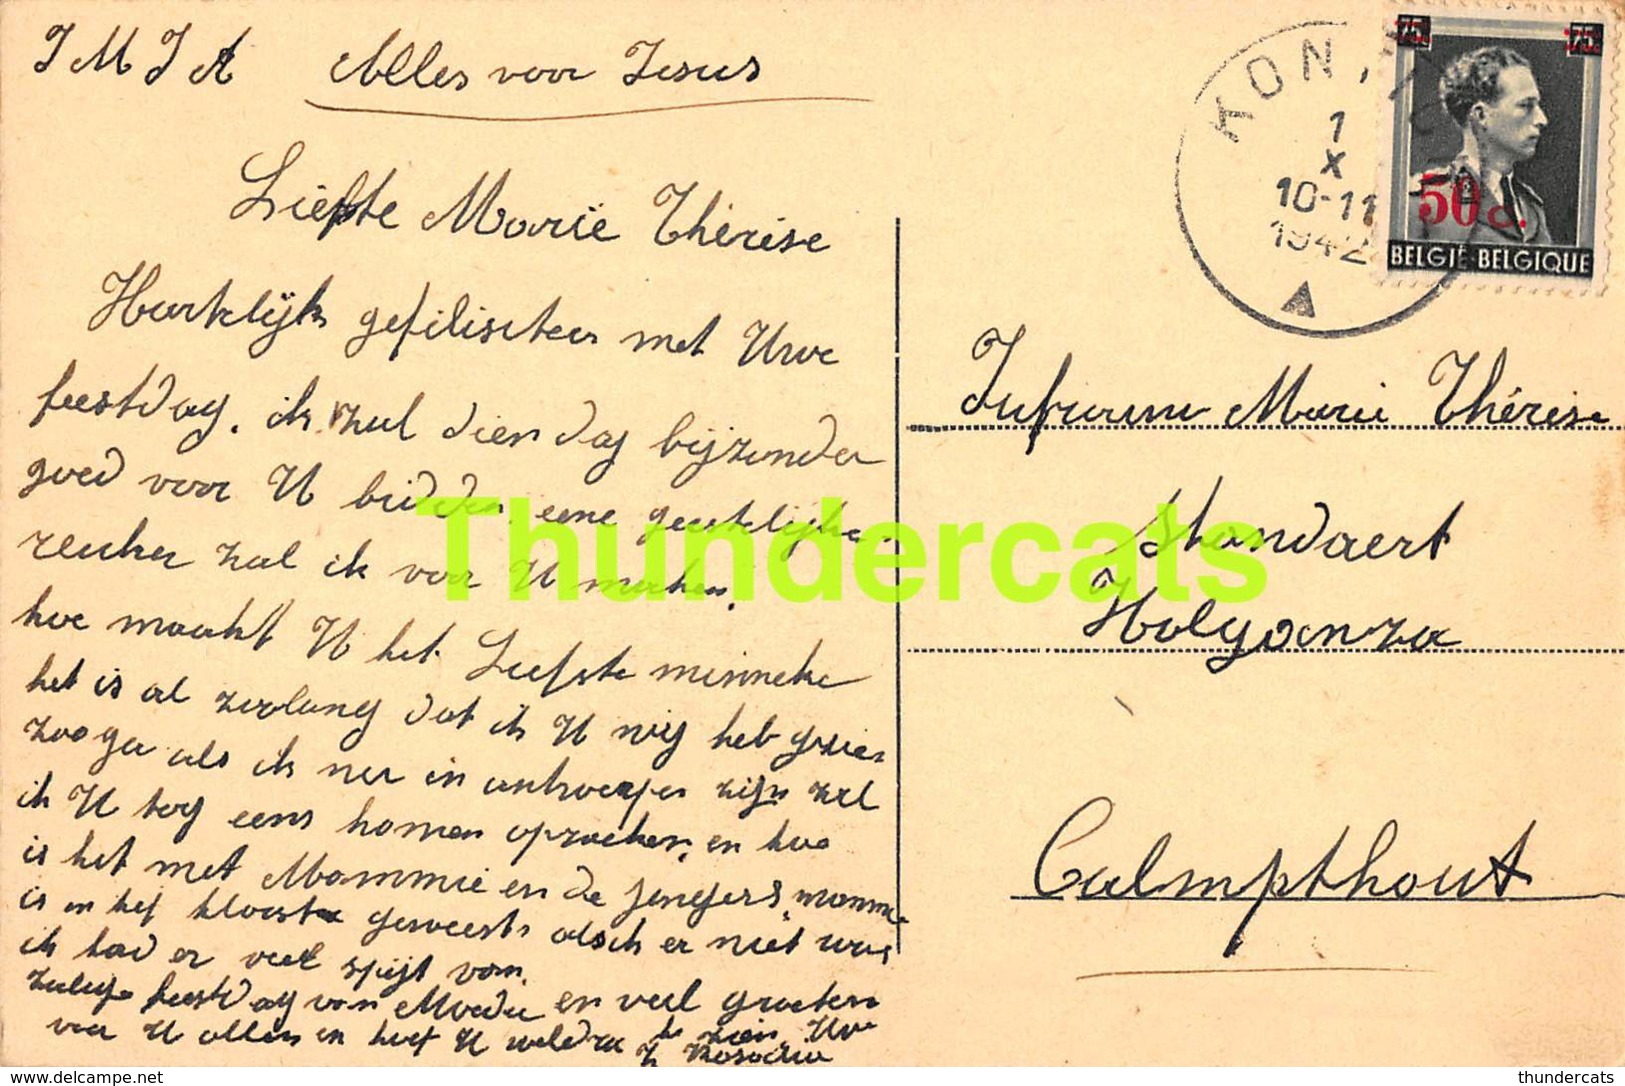 J M J A Alles voor Jesus
Liefste Marie Thérèse
Hartelijk gefilisiteer met Uwe
feestdag. ik zal dien dag bijzonder
goed voor U bidden. eene geestelijke
ruiker zal ik voor U maken.
hoe maakt U het Liefste minneke
het is al zoolang dat ik U nog heb gezien
zooga als ik ner in antwerpen zijn zal
ik U tog eens komen opzoeken, en hoe
is het met Mammie en de jongers, mamme
is in het klooster geweest, alsik er niet was
ik had er veel spijt van.
zalige feestdag van Moeder en veel groeten
voor U allen en hoef U weldra te zien. Uw
Z Rosa
KON
1
X
10-11
1942
A
75
75
50 c.
BELGIE-BELGIQUE
Jufvrouw Marie Thérèse
Standaert
Holyanza
Calmpthout
Thundercats
www.delcampe.net
thundercats